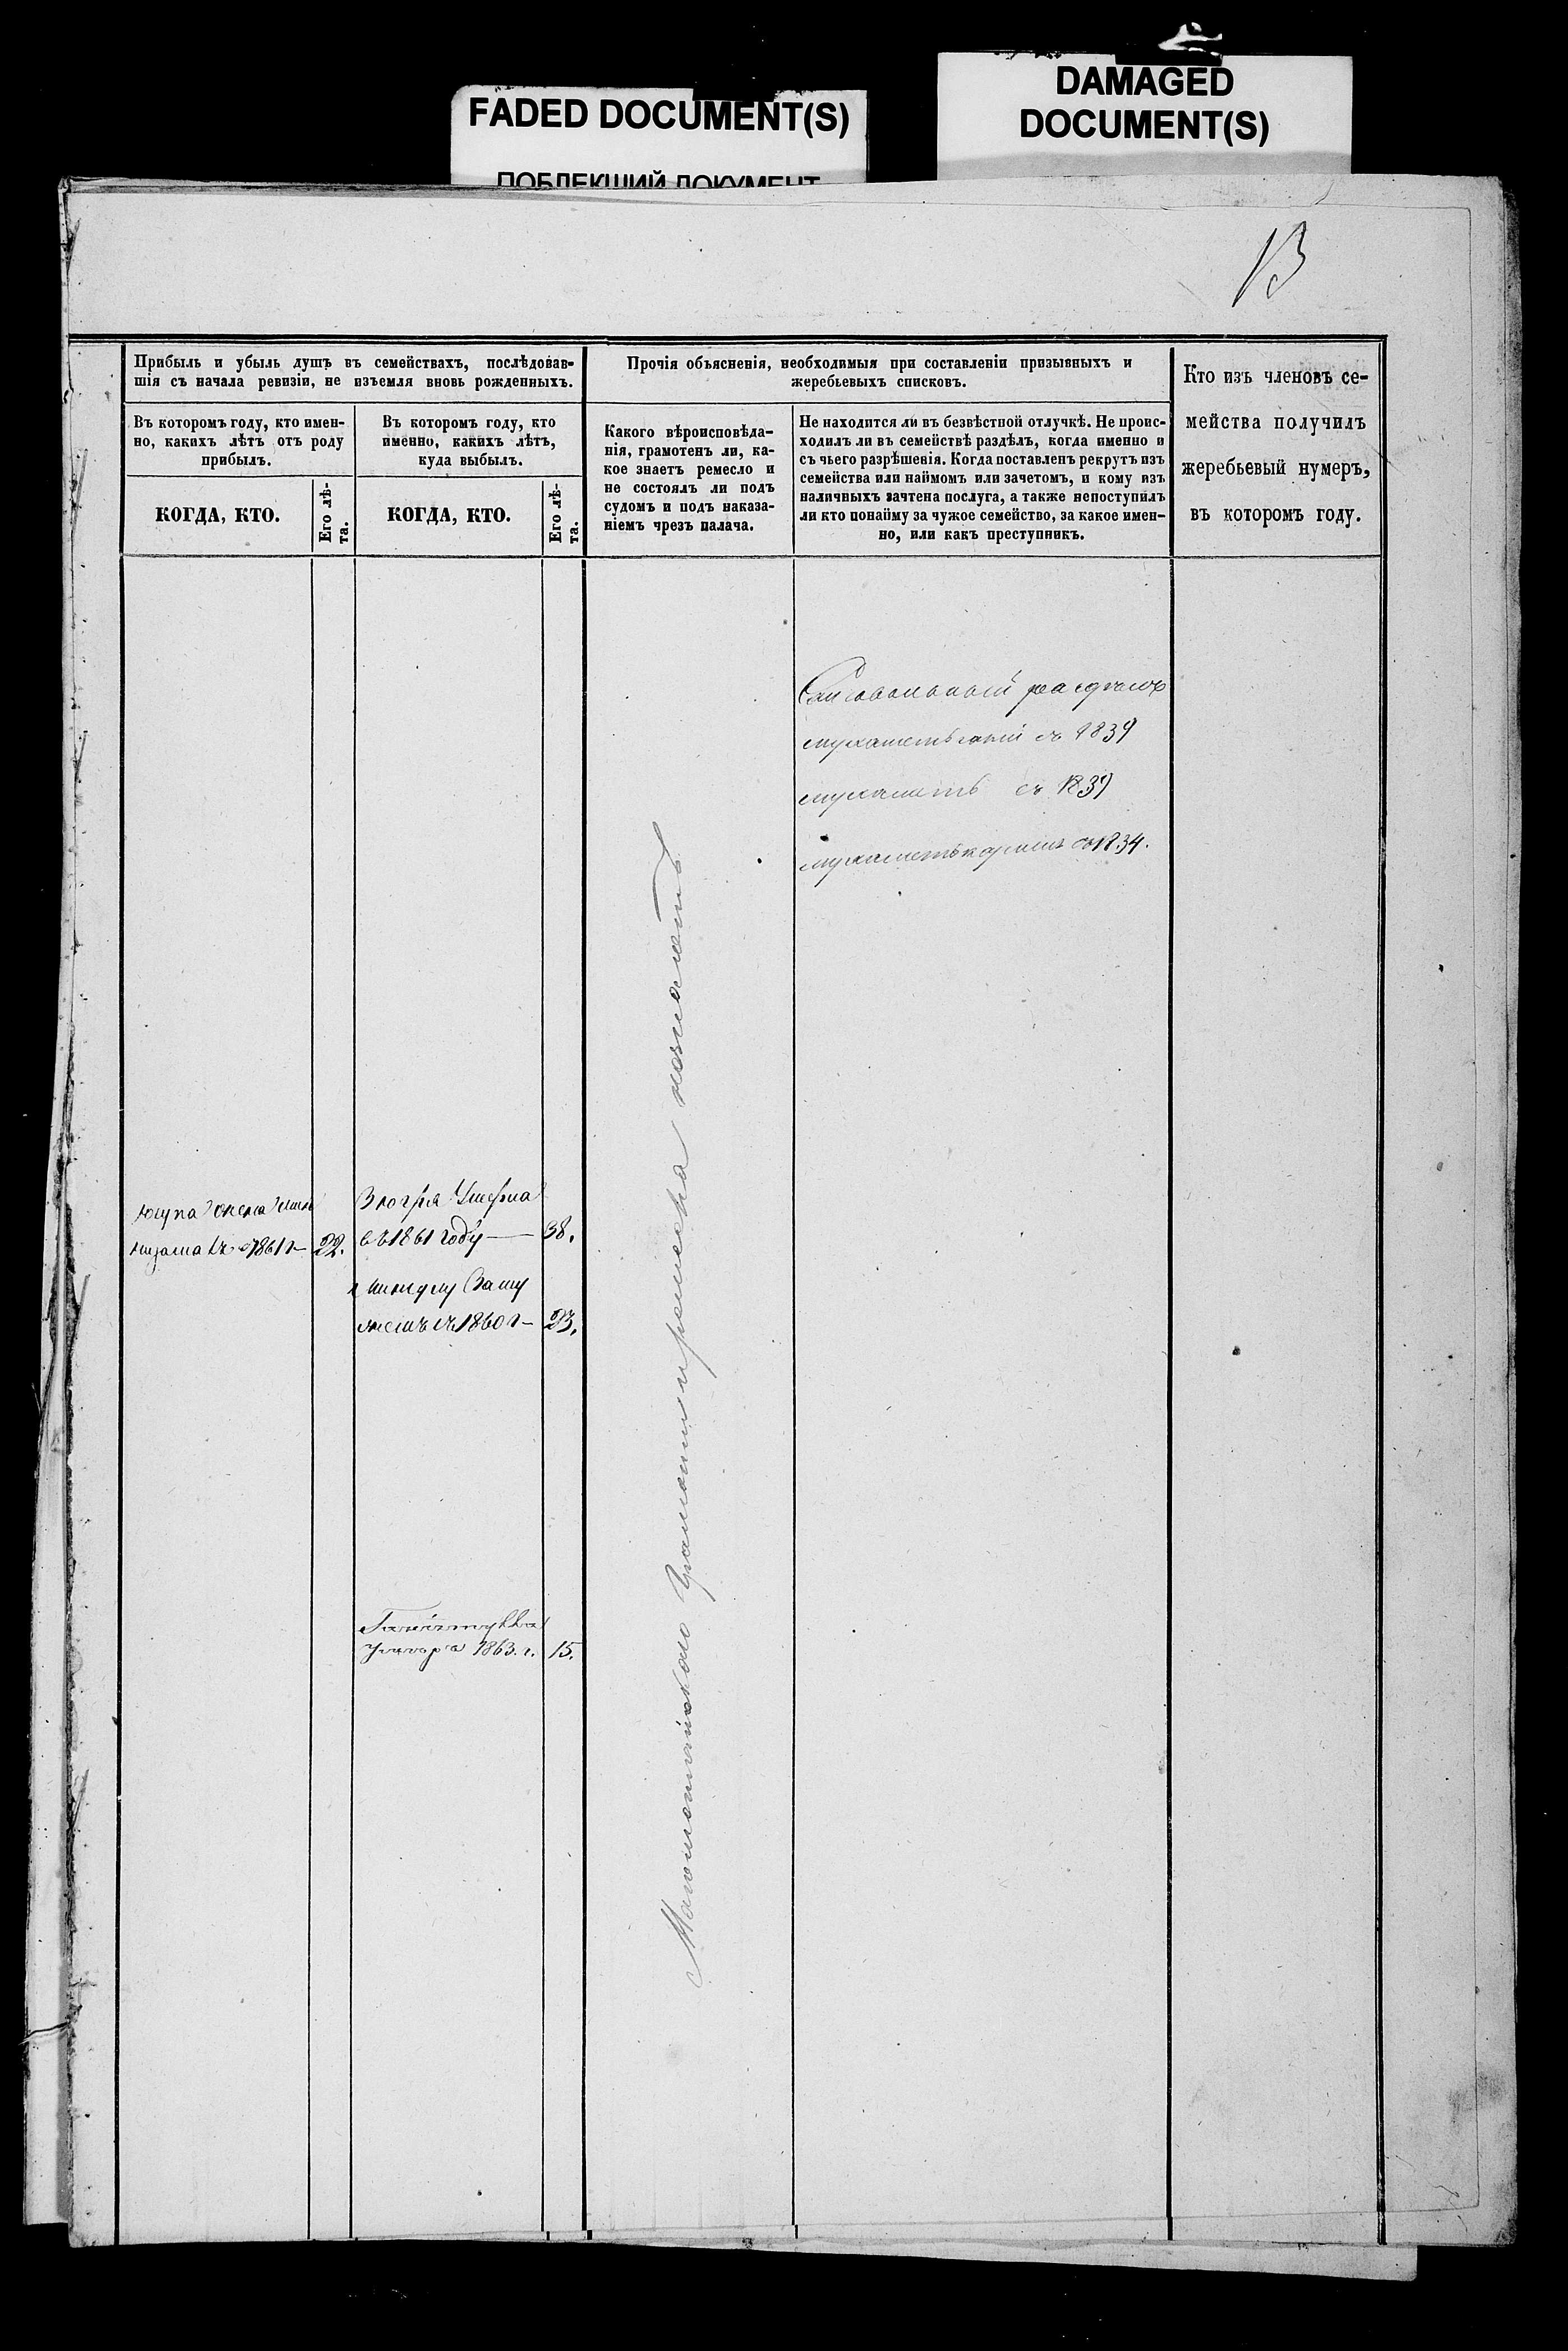 FADED DOCUMENT(S)
ПОБЛЕКШИЙ ДОКУМЕНТ
DAMAGED
DOCUMENT(S)
13
Прибыль и убыль душъ въ семействахъ, послѣдовав-
шія съ начала ревизіи, не изъемля вновь рожденныхъ.
Въ которомъ году, кто имен-
но, какихъ лѣтъ отъ роду
прибылъ.
КОГДА, КТО.
Его лѣ-
та.
Въ которомъ году, кто
именно, какихъ лѣтъ,
куда выбылъ.
КОГДА, КТО.
Его лѣ-
та.
Прочія объясненія, необходимыя при составленіи призывныхъ и
жеребьевыхъ списковъ.
Какого вѣроисповѣда-
нія, грамотенъ ли, ка-
кое знаетъ ремесло и
не состоялъ ли подъ
судомъ и подъ наказа-
ніемъ чрезъ палача.
Не находится ли въ безвѣстной отлучкѣ. Не проис-
ходилъ ли въ семействѣ раздѣлъ, когда именно и
съ чьего разрѣшенія. Когда поставленъ рекрутъ изъ
семейства или наймомъ или зачетомъ, и кому изъ
наличныхъ зачтена послуга, а также непоступилъ
ли кто понайму за чужое семейство, за какое имен-
но, или какъ преступникъ.
Кто изъ членовъ се-
мейства получилъ
жеребьевый нумеръ,
въ которомъ году.
раздѣлъ
съ 1839
мухаметь съ 1839
мухаметькаримъ съ 1834.
1861 г 22.
въ 1861 году — 38.
1860 г — 23.
1863. г. 15.
Магометанскаго грамоти и ремесла незнаютъ